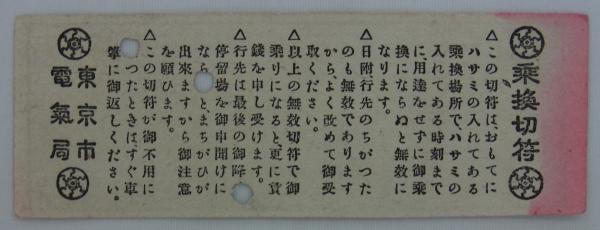 乘換切符
△この切符は、おもてに
ハサミの入れてある
乘換場所で、ハサミの
入れてある時刻まで
に用達をせずに御乘
換にならぬと無效に
なります。
△日附行先のちがつた
のも無效であります
から、よく改めて御受
取ください。
△以上の無效切符で御
乘りになると、更に賃
錢を申し受けます。
△行先は最後の御降
停留場を御申聞けに
なら とまちがひが
出來ますから御注意
を願ひます。
△この切符が御不用に
つたときは、すぐ車
掌に御返しください。
東京市
電氣局